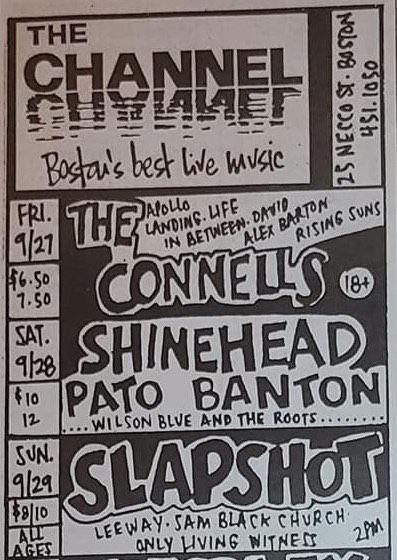 THE
CHANNEL
Boston's best live music
25 NECCO ST. BOSTON
451.1050
FRI.
9/27
$6.50
7.50
THE
CONNELLS
APOLLO
LANDING. LIFE
IN BETWEEN. DAVID
ALEX BARTON
RISING SUNS
18+
SAT.
9/28
$10
12
SHINEHEAD
PATO BANTON
....WILSON BLUE AND THE ROOTS........
SUN.
9/29
$8/10
ALL
AGES
SLAPSHOT
LEEWAY · SAM BLACK CHURCH ·
ONLY LIVING WITNESS
2PM